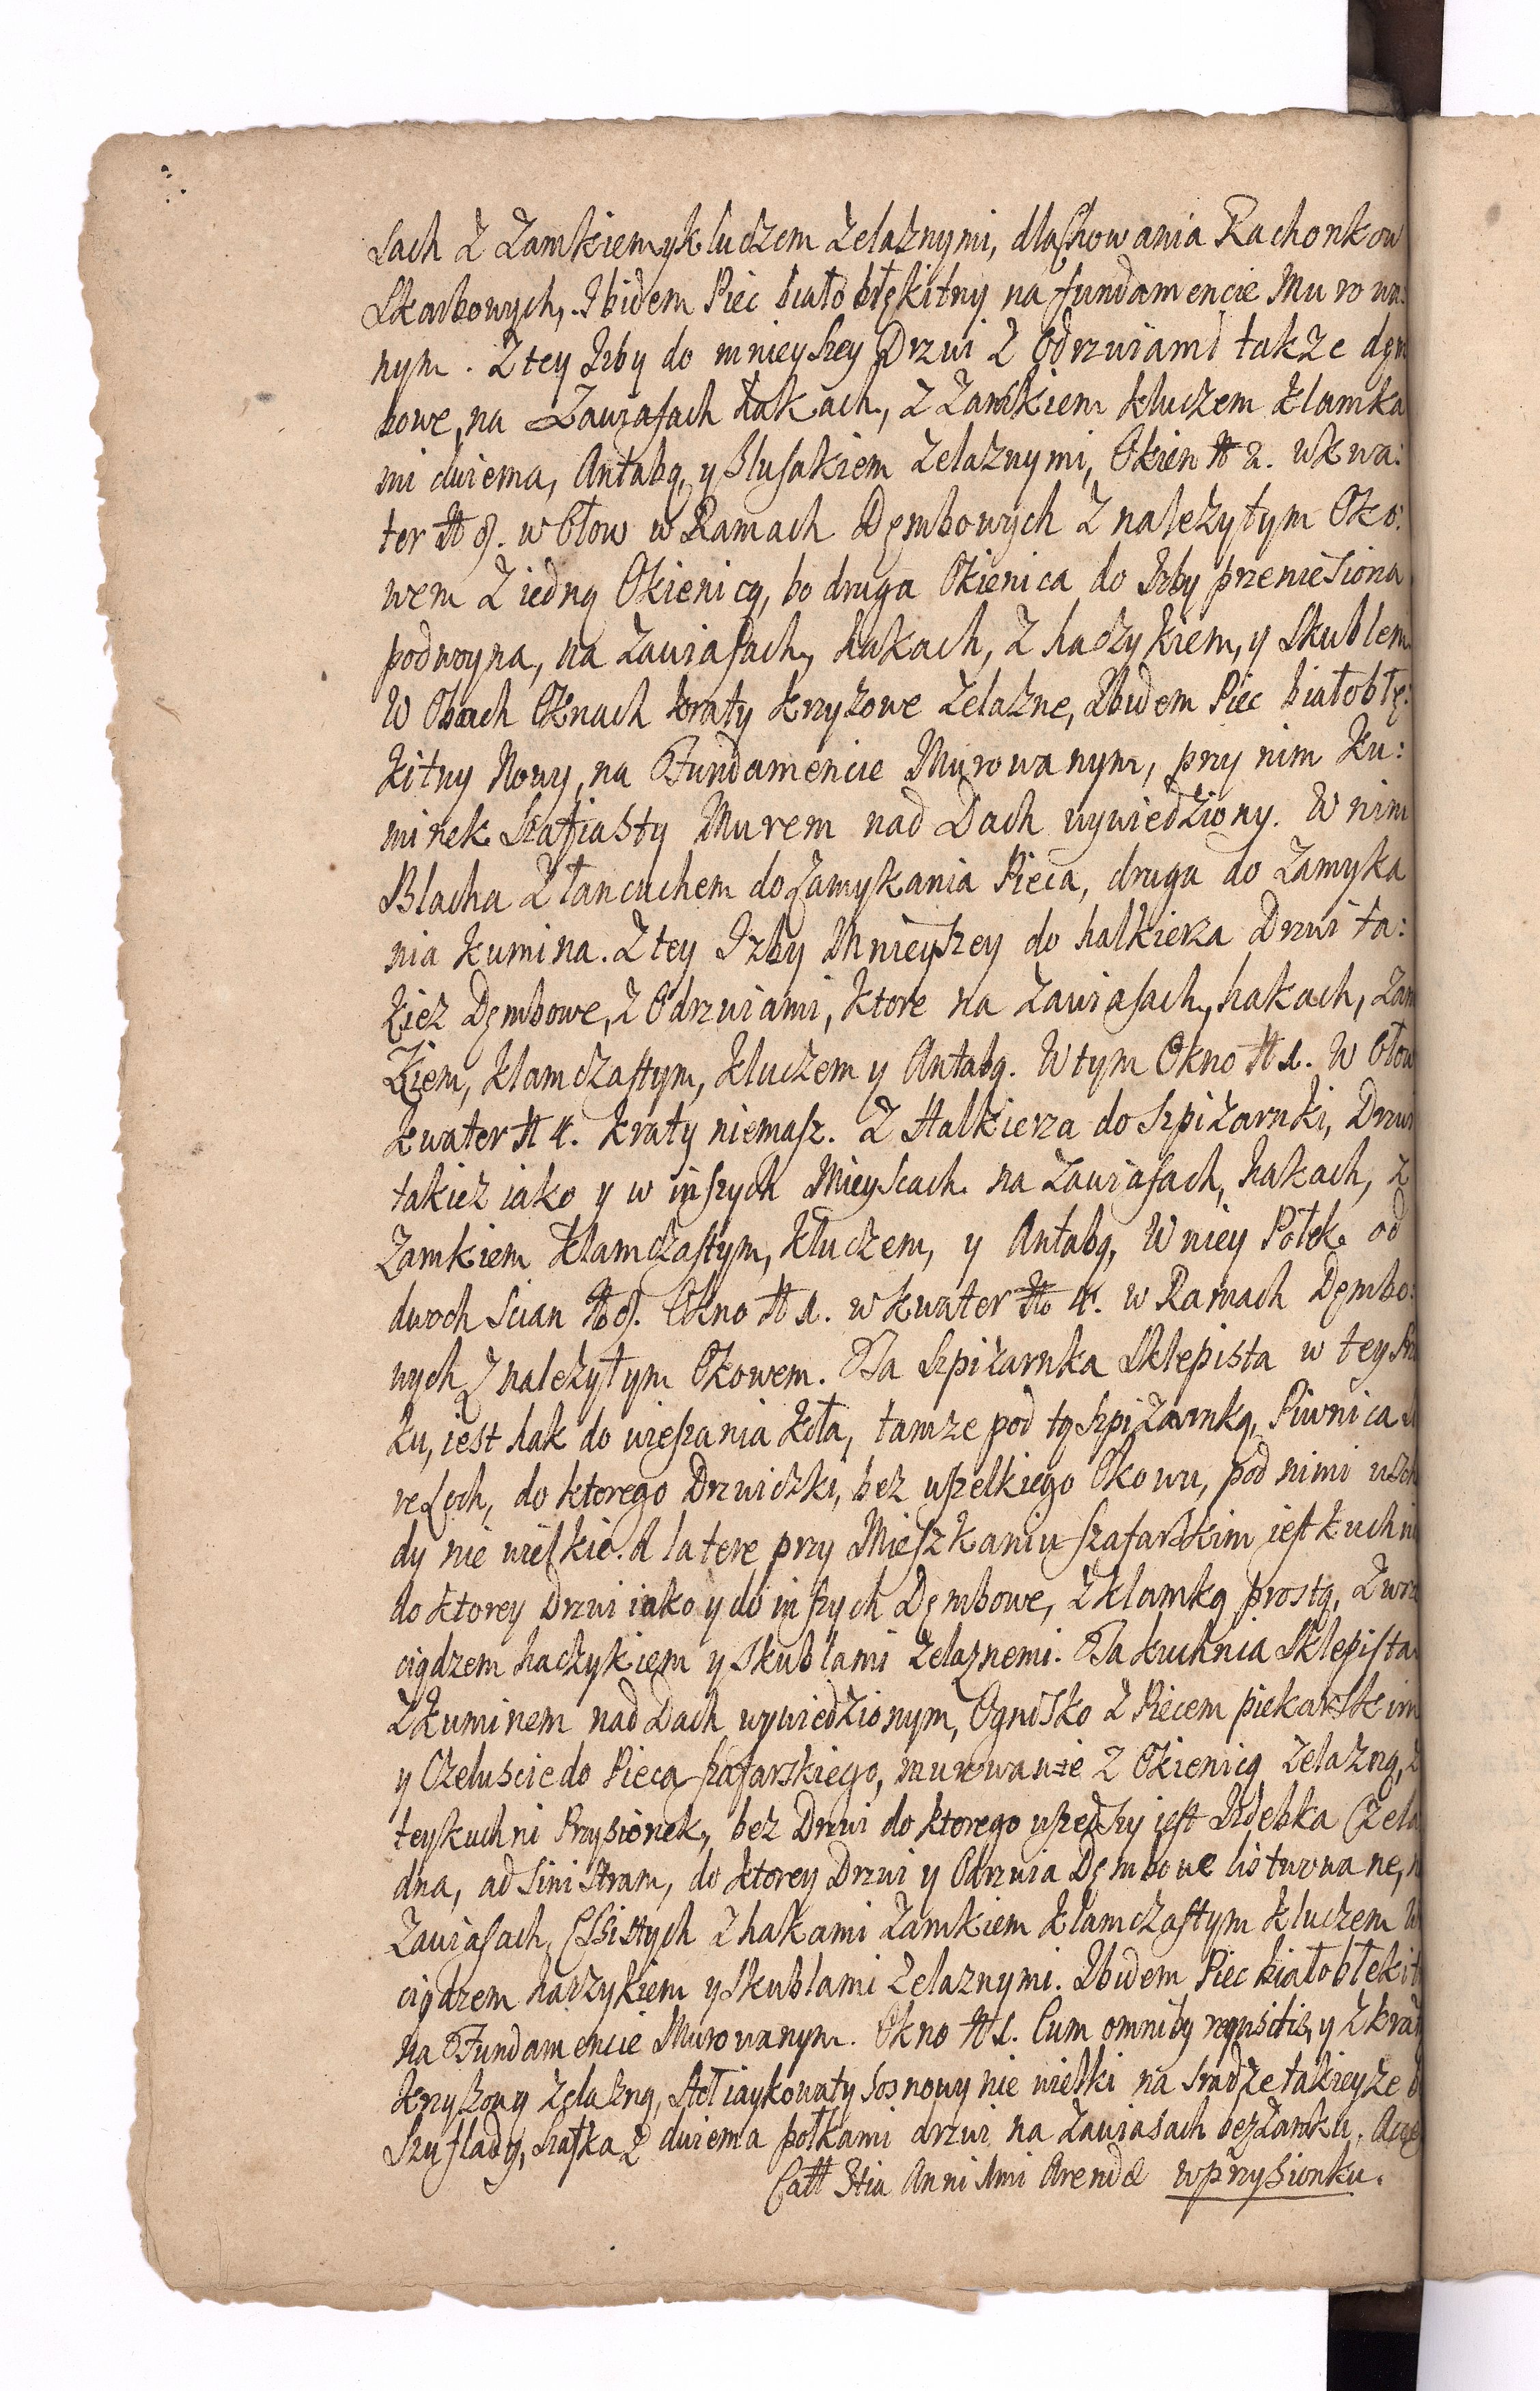 sach z Zamkiem y kluczem żelaznymi, dla Chowania Rachonkow
Skarbowych, Ibidem Piec biało błękitny na fundamencie Murowa:
nym. Z tey Izby do mnieyszey Drzwi z Odrzwiami także dęm
bowe, na Zawiasach hakach, z Zamkiem kluczem klamka
mi dwiema, Antabą, y Blusakiem żelaznymi, Okien № 2. w kwa:
ter № 8. w Ołow w Ramach Dęmbowych z należytym Oko:
wem z iedną Okienicą, bo druga Okienica do Izby przeniesiona
podwoyna, na zawiasach, hakach, z haczykiem, y Skublem
W Obuch Oknach kraty krzyżowe żelazne, Ibidem Piec białobłę:
kitny Nowy, na Fundamencie Murowanym, przy nim Ku:
minek Szafiasty Murem nad Dach wywiedziony. W nim
Blacha z łancuchem do Zamykania Pieca, druga do zamyka
nia kumina. Z tey Izby Mnieyszey do halkierza Drzwi ta:
kież Dęmbowe, z Odrzwiami, ktore na zawiasach, hakach, zam
kiem, klamczastym, kluczem y Antabą. W tym Okno № 1. W Ołow
kwater № 4. kraty niemasz. Z Halkierza do Szpiżarnki, Drzwi
takież iako y w inszych Mieyscach na zawiasach, hakach, z
Zamkiem klamczastym, kluczem, y Antabą, W niey Połek od
dwoch Scian № 8. Okno № 1. w kwater № 4. w Ramach Dęmbo:
wych z należytym Okowem. Ta Szpiżarnka Sklepista w tey
ku, iest hak do wieszania kła, tamze pod tą Szpiżarnką, Piwnica
re Loch, do ktorego Drzwiczki, bez wszelkiego Okowu, pod nimi wscho
dy nie wielkie. A latere przy Mieszkaniu szafarskim iest kuchnia
do ktorey Drzwi iako y do inszych Dęmbowe, z klamką prostą, z wrze
ciądzem haczykiem y Skublami żelaznemi. Ta kuchnia Sklepista
z kuminem nad Dach wywiedzionym, Ognisko z Piecem piekarskim
y Czeluscie do Pieca szafarskiego, murowanie z Okienicą żelazną, z
tey kuchni Przysionek, bez Drzwi do ktorego wszedszy iest Izdebka Czela
dna, ad Sinistram, do ktorey Drzwi y Odrzwia Dęmbowe listwowane, n
Zawiasach Essistych z hakami zamkiem klamczastym kluczem W
ciądzem haczykiem y Skublami żelaznymi. Ibidem Piec białobłekit
na Fundamencie Murowanym. Okno № 1. Cum omnibq requisitis, y z kratą
krzyżową żelazną, Stoł iaykowaty Sosnowy nie wielki na sradze takieyże
Szuflady, Szafka z dwiema połkami drzwi na zawiasach bez zamku.
w przysionku.